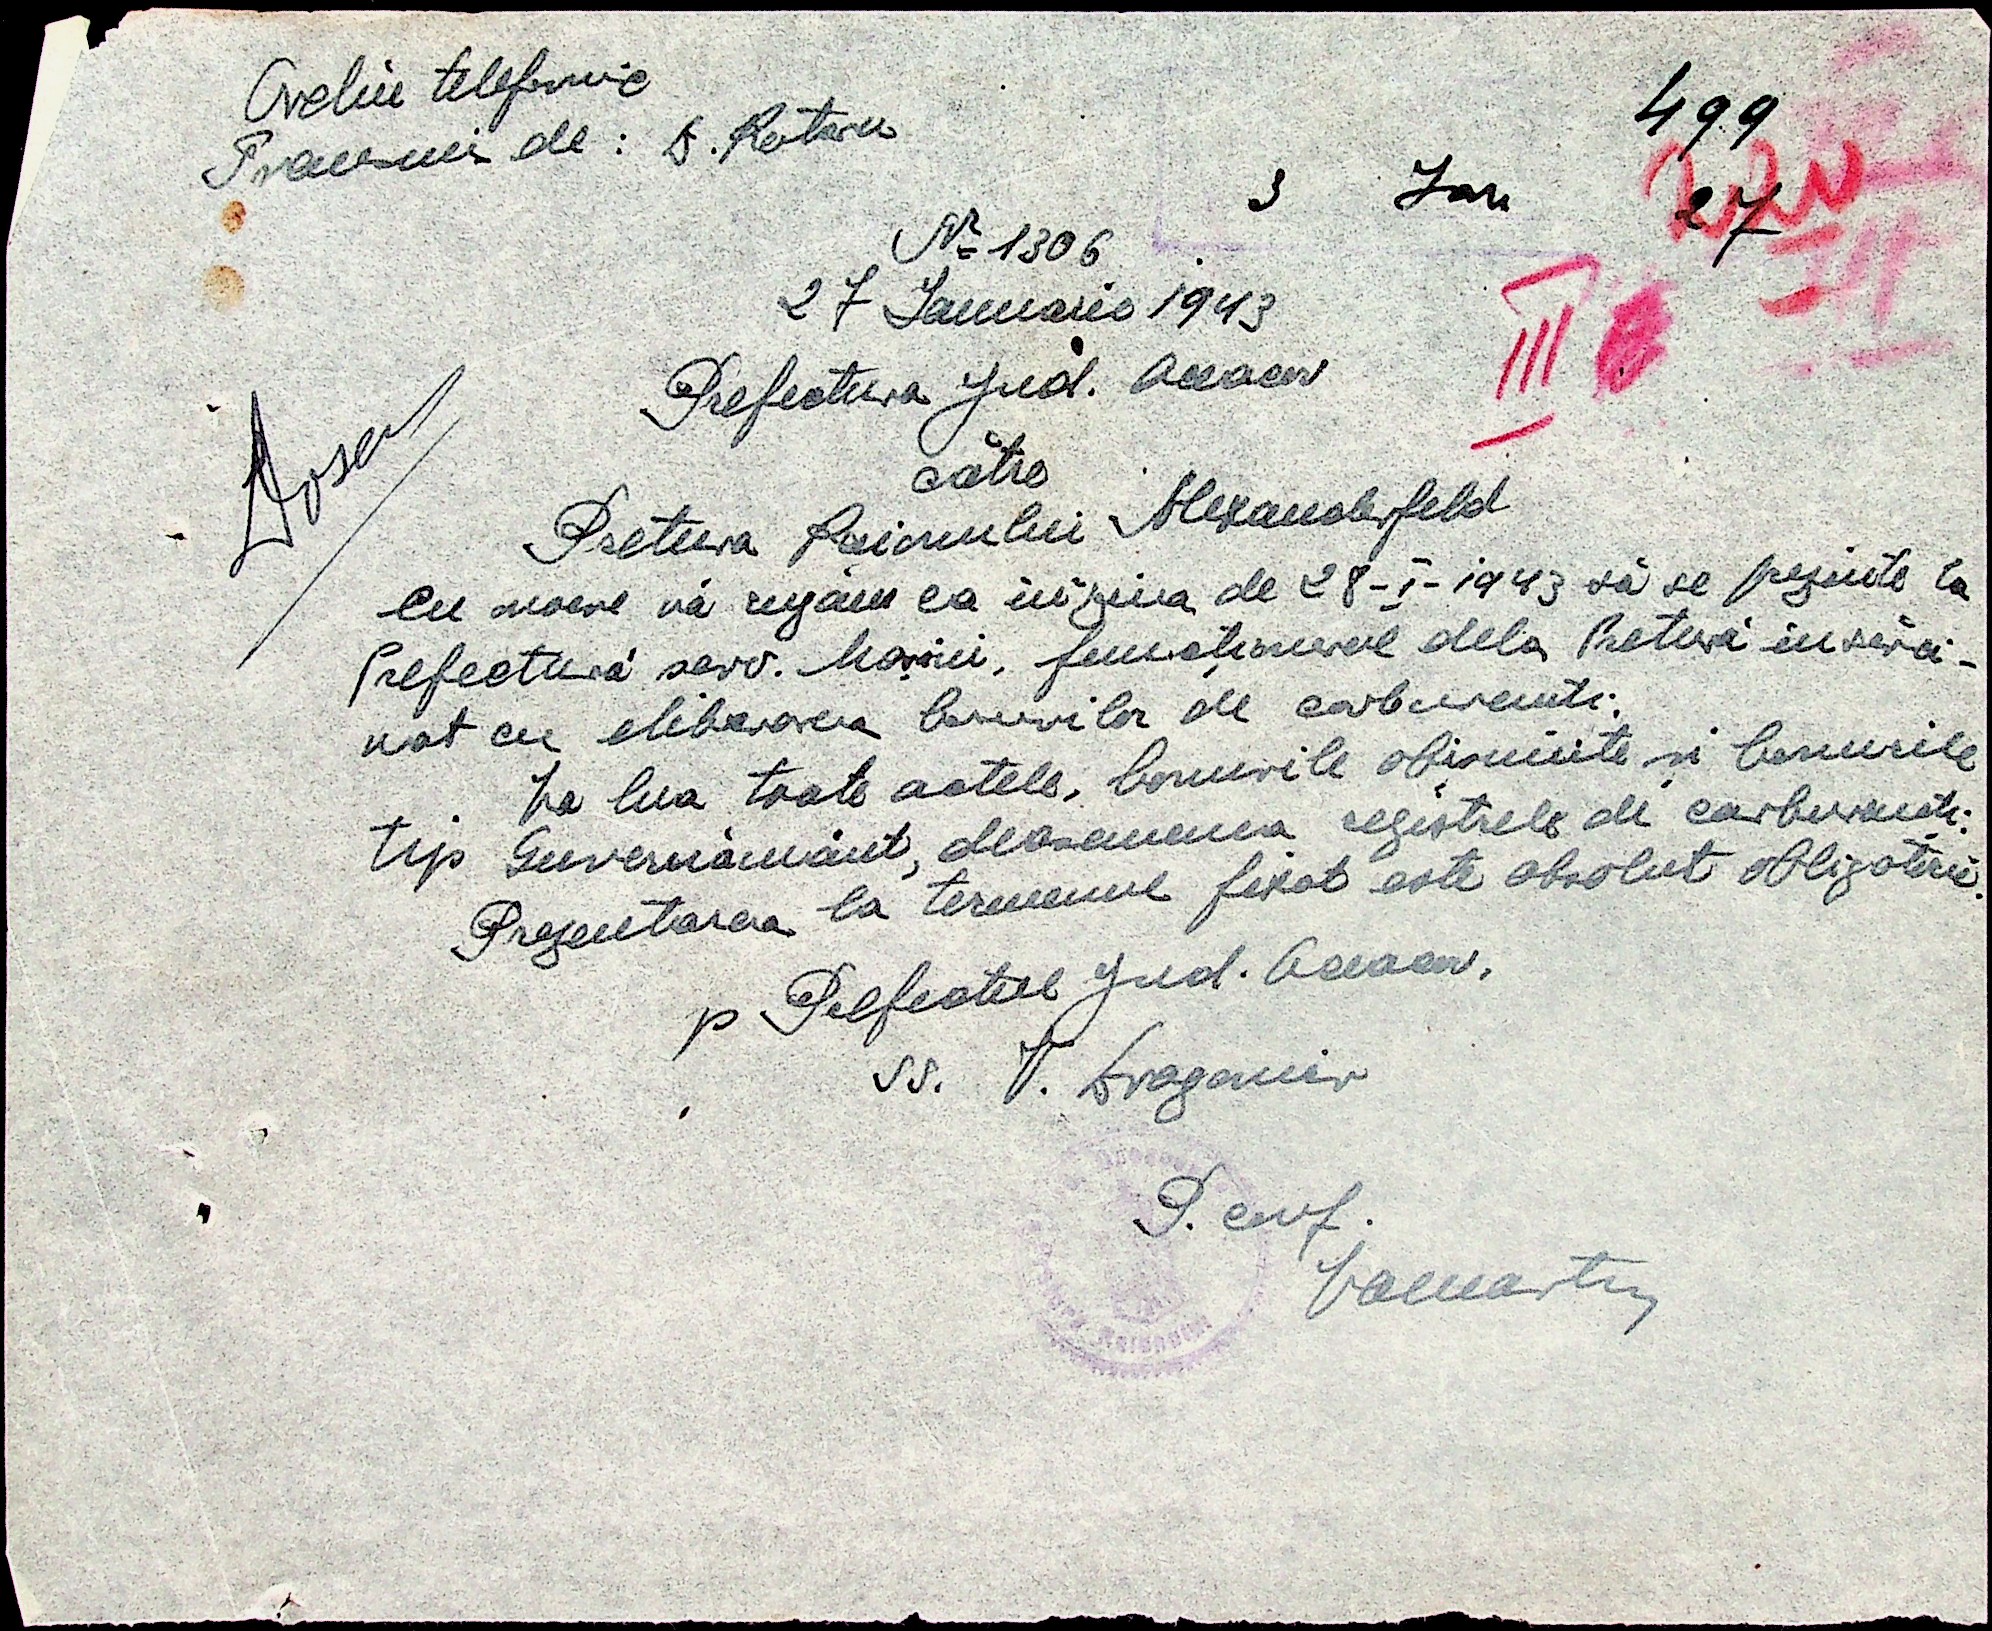 Ordin telefonic
Transmis de: D. Rotaru
499
3 Ian 27
Nr 1306
27 Ianuarie 1943
III
Prefectura Jud. Oceacov
către
Dosar
Pretura Raionului Alexanderfeld
Cu onoare vă rugăm ca în ziua de 28-I-1943 să se prezinte la
Prefectură serv. funcționarul dela Pretură însărci-
nat cu eliberarea bonurilor de carburanți.
Va lua toate actele, bonurile obișnuite și bonurile
tip Guvernământ, deasemenea registrele de carburanți.
Prezentarea la termenul fixat este absolut obligatorie.
p Prefectul Jud. Oceacov.
ss. V. Dragomir
P. conf.